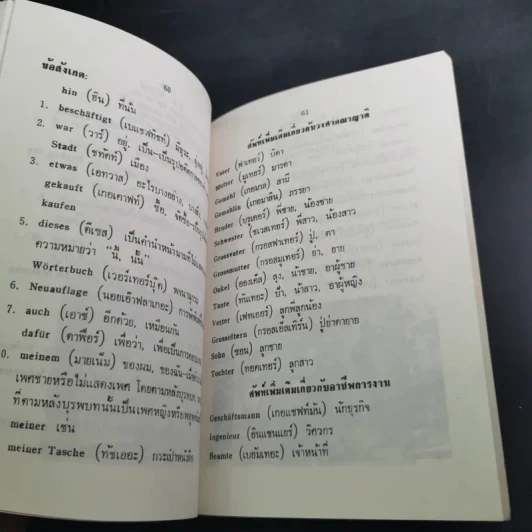 60
ข้อสังเกต:
hin (ฮิน) ที่นั่น
1. beschäftigt (เบแชสทิชท์) มีธุระ,
2. war (วาร์) อยู่, เป็น–เป็นรูปอดีตกาล
Stadt (ชทัดท์) เมือง
3. etwas (เอทวาส) อะไรบางอย่าง,
gekauft (เกอเคาฟท์) ซื้อ,
kaufen
5. dieses (ดีเซส) เป็นคำนำหน้านาม
ความหมายว่า "นี้, นั้น"
Wörterbuch (เวอร์เทอร์บู๊ค) พจนานุกรม
6. Neuauflage (นอยเอ้าฟลาเกอะ) การพิมพ์
7. auch (เอาช์) อีกด้วย, เหมือนกัน
dafür (ดาฟือร์) เพื่อว่า, เพื่อเป็นการ
0. meinem (มายเน็ม) ของผม, ของฉัน
เพศชายหรือไม่แสดงเพศ โดยตามหลังบุรพบท
ที่ตามหลังบุรพบทนั้นเป็นเพศหญิงหรือพหูพจน์
meiner เช่น
meiner Tasche (ทัชเยอะ) กระเป๋าหนังสือ
61
ศัพท์เพิ่มเติมเกี่ยวกับวงศาคณาญาติ
Vater (ฟาเทอร์) บิดา
Mutter (มูเทอร์) มารดา
Gemahl (เกอมาล) สามี
Gemahlin (เกอมาลิน) ภรรยา
Bruder (บรูเดอร์) พี่ชาย, น้องชาย
Schwester (ชเวสเทอร์) พี่สาว, น้องสาว
Grossvater (กรอสฟาเทอร์) ปู่, ตา
Grossmutter (กรอสมุเทอร์) ย่า, ยาย
Onkel (ออนเคิล) ลุง, น้าชาย, อาผู้ชาย
Tante (ทันเทอะ) ป้า, น้าสาว, อาผู้หญิง
Vetter (เฟทเธอร์) ลูกพี่ลูกน้อง
Grosseltern (กรอสเอ็ลเทิร์น) ปู่ย่าตายาย
Sohn (ซอน) ลูกชาย
Tochter (ทอคเทอร์) ลูกสาว
ศัพท์เพิ่มเติมเกี่ยวกับอาชีพการงาน
Geschäftsmann (เกอแชฟท์มัน) นักธุรกิจ
Ingenieur (อินแชนแยร์) วิศวกร
Beamte (เบอัมเทอะ) เจ้าหน้าที่